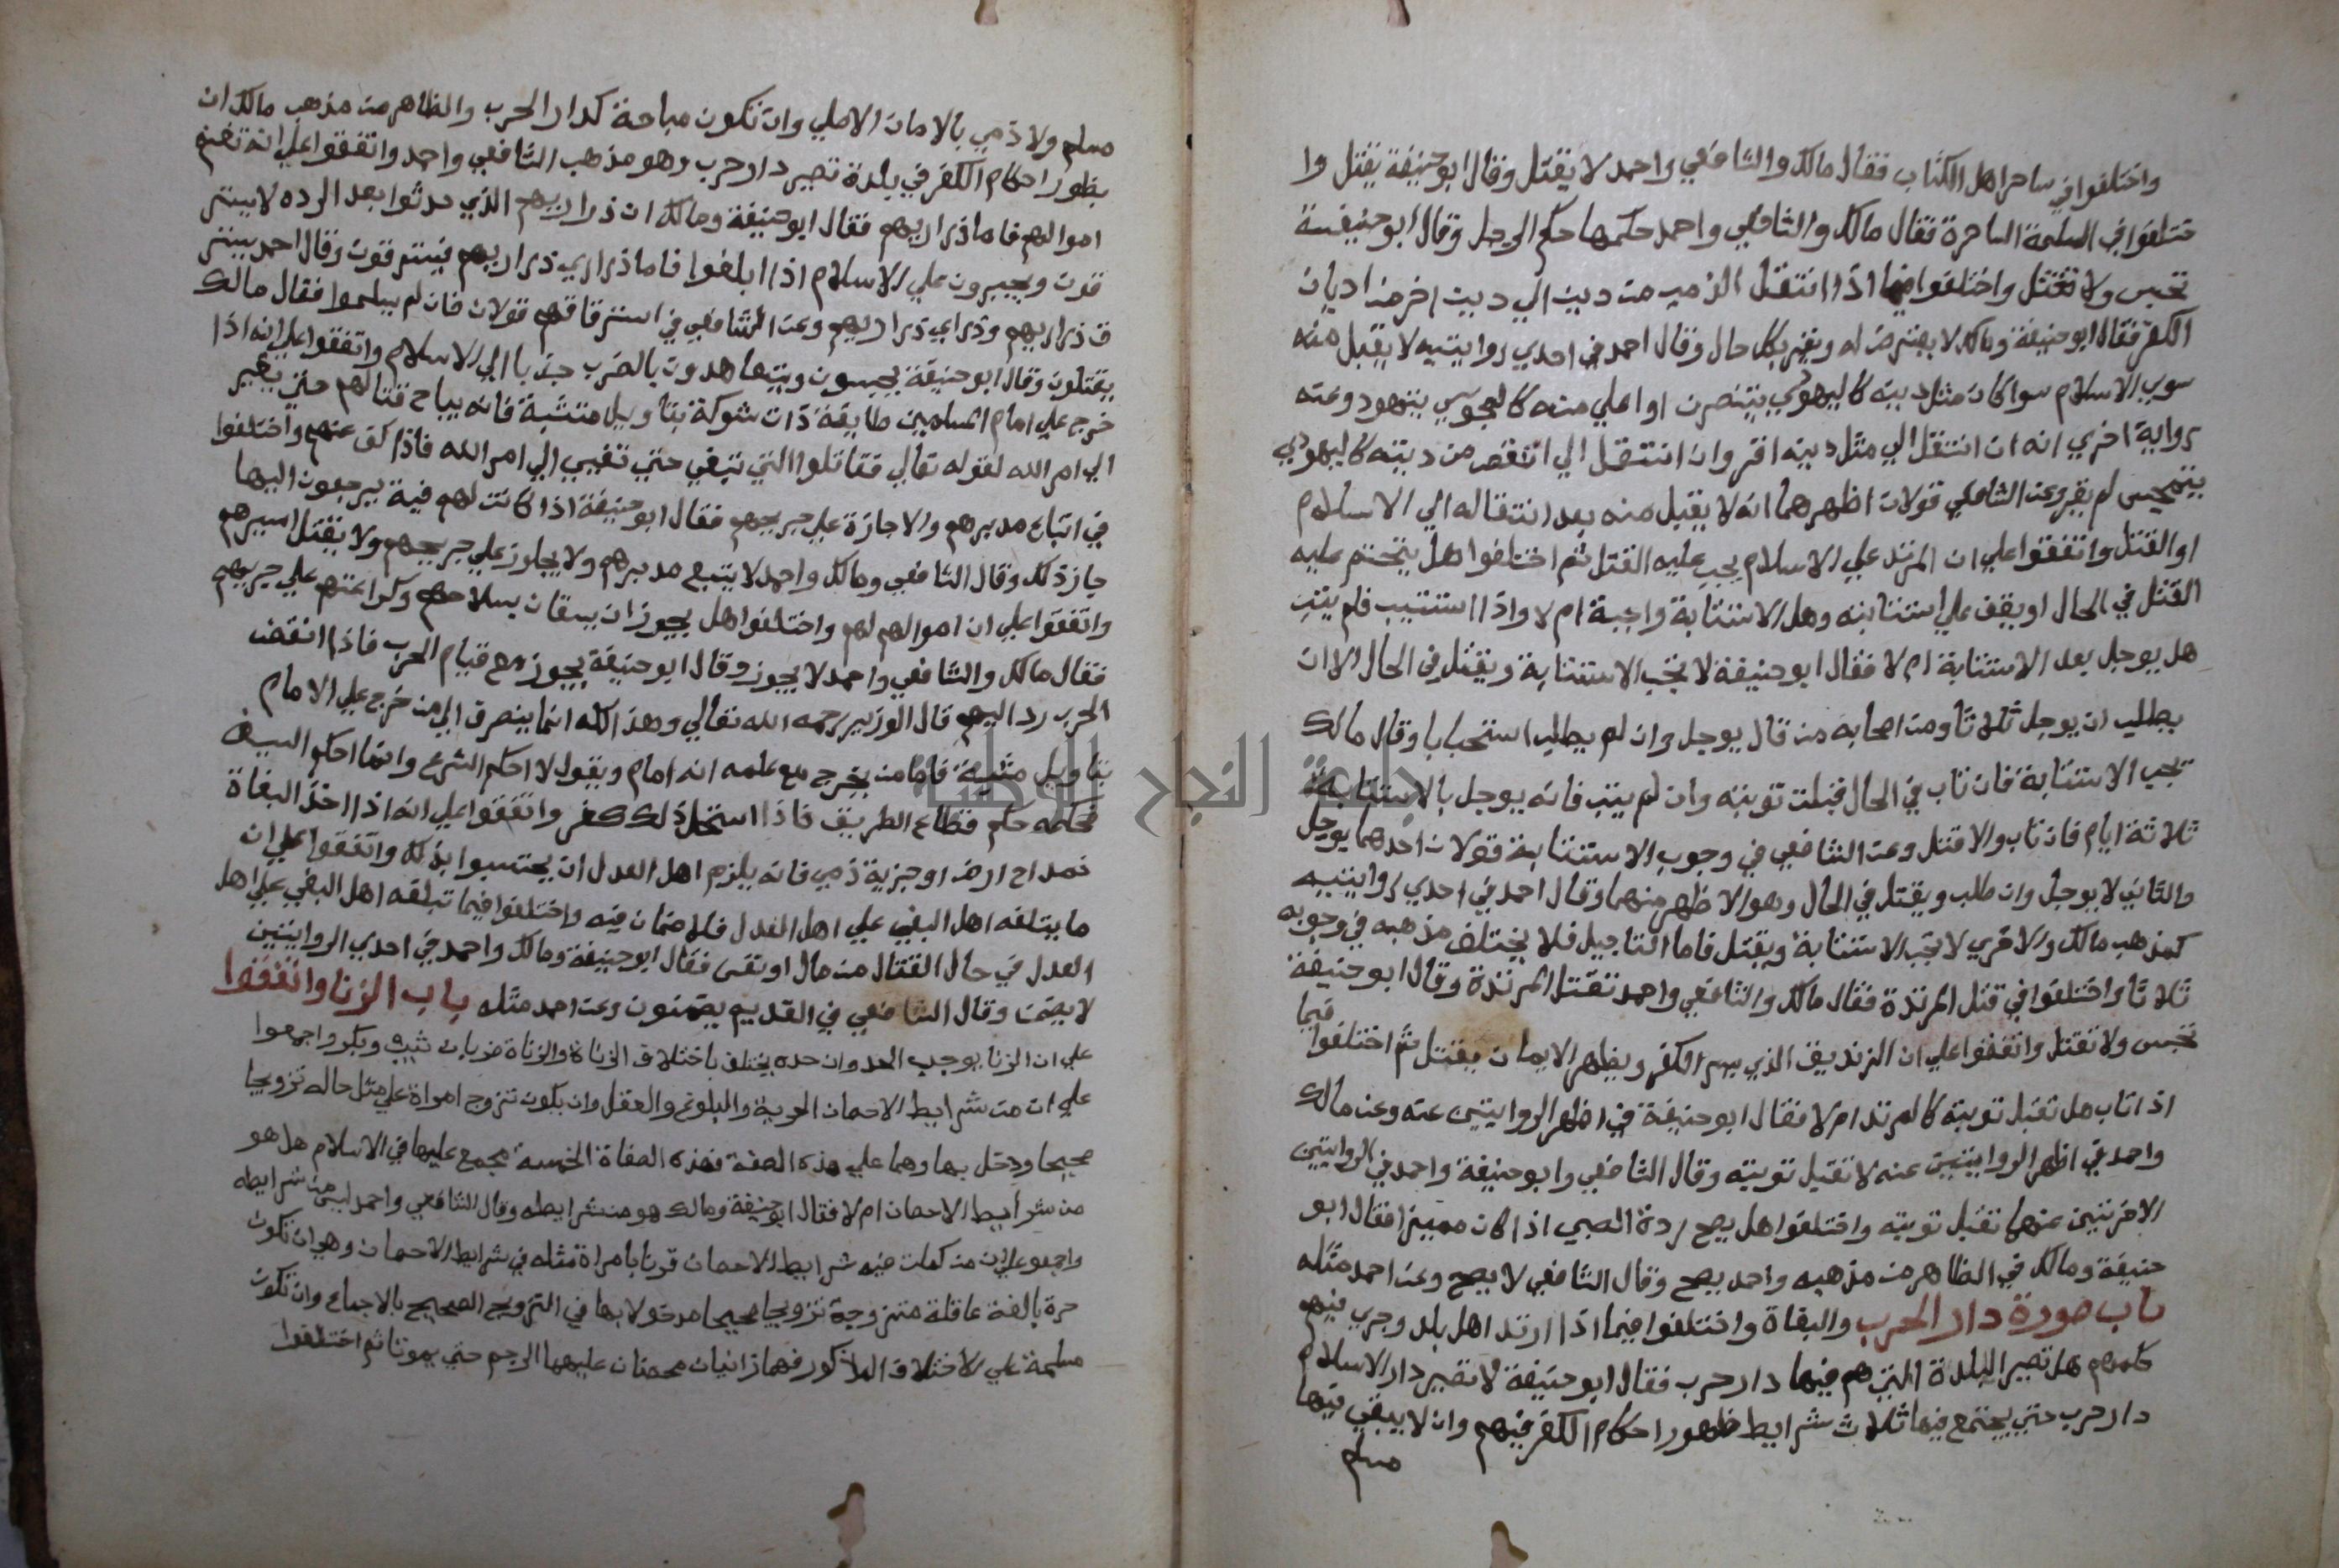 واختلفوا في ساحر اهل الكتاب فقال مالك والشافعي واحمد لا يقتل وقال ابوحنيفة يقتل وا
ختلفوا في المسلمة الساحرة فقال مالك والشافعي واحمد حكمها حكم الرجل وقال ابوحنيفة
تحبس ولا تقتل واختلفوا فيما اذا انتقل الذمي من دين الي دين اخر من اديان
الكفر فقال ابوحنيفة ومالك لا يعترض له ويقر بكل حال وقال احمد في احدي روايتيه لا يقبل منه
سوي الاسلام سوا كان مثل دينه كاليهودي يتنصر او اعلي منه كالمجوسي يتهود وعنه
رواية اخري انه ان انتقل الي مثل دينه اقر وان انتقل الي انقص من دينه كاليهودي
يتمجس لم يقر وعن الشافعي قولان اظهرهما انه لا يقبل منه بعد انتقاله الي الاسلام
او القتل واتفقوا علي ان المرتد علي الاسلام يجب عليه القتل ثم اختلفوا هل يتحتم عليه
القتل في الحال او يقف علي استتابته وهل الاستتابة واجبة ام لا واذا استتيب فلم يتب
هل يوجل بعد الاستتابة ام لا فقال ابوحنيفة لا تجب الاستتابة ويقتل في الحال الا ان
يطلب ان يوجل ثلاثا ومن اصحابه من قال يوجل وان لم يطلب استحبابا وقال مالك
تجب الاستتابة فان تاب في الحال قبلت توبته وان لم يتب فانه يوجل بالاستتابة
ثلاثة ايام فان تاب والا قتل وعن الشافعي في وجوب الاستتابة قولان احدهما يوجل
والثاني لا يوجل وان طلب ويقتل في الحال وهو الاظهر منهما وقال احمد في احدي روايتيه
كمذهب مالك والاخري لا تجب الاستتابة ويقتل فاما التاجيل فلا يختلف مذهبه في وجوبه
ثلاثا واختلفوا في قتل المرتدة فقال مالك والشافعي واحمد تقتل المرتدة وقال ابوحنيفة
تحبس ولا تقتل واتفقوا علي ان الزنديق الذي يسر الكفر ويظهر الايمان يقتل ثم اختلفوا فيما
اذا تاب هل تقبل توبته كالمرتد ام لا فقال ابوحنيفة في اظهر الروايتين عنه وعن مالك
واحمد في اظهر الروايتين عنه لا تقبل توبته وقال الشافعي وابوحنيفة واحمد في الروايتين
الاخرتين عنهما تقبل توبته واختلفوا هل يصح ردة الصبي اذا كان مميزا فقال ابو
حنيفة ومالك في الظاهر من مذهبه واحمد يصح وقال الشافعي لا يصح وعن احمد مثله
باب صورة دار الحرب والبغاة واختلفوا فيما اذا ارتد اهل بلد وجري فيهم
حكمهم هل تصير البلدة التي هم فيها دار حرب فقال ابوحنيفة لا تصير دار الاسلام
دار حرب حتي يجتمع فيها ثلاث شرايط ظهور احكام الكفر فيهم وان لا يبقي فيها
مسلم
مسلم ولا ذمي بالامان الاصلي وان تكون مباحة كدار الحرب والظاهر من مذهب مالك ان
بظهور احكام الكفر في بلدة تصير دار حرب وهو مذهب الشافعي واحمد واتفقوا علي انه تغنم
اموالهم فاما ذراريهم فقال ابوحنيفة ومالك ان ذراريهم الذي حدثوا بعد الرده لا يستر
قون ويجبرون علي الاسلام اذا ابلغوا فاما ذراري ذراريهم فيسترقون وقال احمد يستر
ق ذراريهم وذراي ذراريهم وعن الشافعي في استرقاقهم قولان فان لم يسلموا فقال مالك
يقتلون وقال ابوحنيفة يحبسون ويتعاهدون بالضرب جذبا الي الاسلام واتفقوا علي انه اذا
خرج علي امام المسلمين طايفة ذات شوكة بتاويل مشتبة فانه يباح قتالهم حتي يفير
الي امر الله لقوله تعالي فقاتلوا التي تبغي حتي تفيي الي امر الله فاذا كف عنهم واختلفوا
في اتباع مدبرهم والاجازة علي جريحهم فقال ابوحنيفة اذا كانت لهم فية يرجعون اليها
جاز ذلك وقال الشافعي ومالك واحمد لا يتبع مدبرهم ولا يجاوز علي جريحهم ولا يقتل اسيرهم
واتفقوا علي ان اموالهم لهم واختلفوا هل يجوز ان يستعان بسلاحهم وكراعهم علي حربهم
فقال مالك والشافعي واحمد لا يجوز وقال ابوحنيفة يجوز مع قيام الحرب فاذا انقضت
الحرب رد اليهم قال الوزير رحمه الله تعالي وهذا كله انما ينصرف الي من خرج علي الامام
بتاويل مشبه فاما من يخرج مع علمه انه امام ويقول لا احكم الشرع وانما احكم السيف
فحكمه حكم قطاع الطريق فاذا استحل ذلك كفر واتفقوا علي انه اذا اخذ البغاة
خراج ارض او جزية ذمي فانه يلزم اهل العدل ان يحتسبوا بذلك واتفقوا علي ان
ما يتلفه اهل البغي علي اهل العدل فلا ضمان فيه واختلفوا فيما تبلفه اهل البغي علي اهل
العدل في حال القتال من مال او نفس فقال ابوحنيفة ومالك واحمد في احدي الروايتين
لا يضمن وقال الشافعي في القديم يضمنون وعن احمد مثله باب الزنا واتفقوا
علي ان الزنا يوجب الحد وان حده يختلف باختلاف الزناة والزناة ضربان ثيب وبكر واجمعوا
علي ان من شرايط الاحصان الحرية والبلوغ والعقل وان يكون تزوج امراة علي مثل حاله تزويجا
صحيحا ودخل بها وهما علي هذه الصفة فهذه الصفاة الخمسة مجمع عليها في الاسلام هل هو
من شرايط الاحصان ام لا فقال ابوحنيفة ومالك هو من شرايطه وقال الشافعي واحمد ليس من شرايطه
واجمعو علي ان من كملت فيه شرايط الاحصان فزنا بامراة مثله في شرايط الاحصان وهي ان تكون
حرة بالغة عاقلة متزوجة تزويجا صحيحا مدخولا بها في التزويج الصحيح بالاجماع وان تكون
مسلمة علي الاختلاف المذكور فهما زانيان محصنان عليهما الرجم حتي يموتا ثم اختلفوا
جامعة النجاح الوطنية